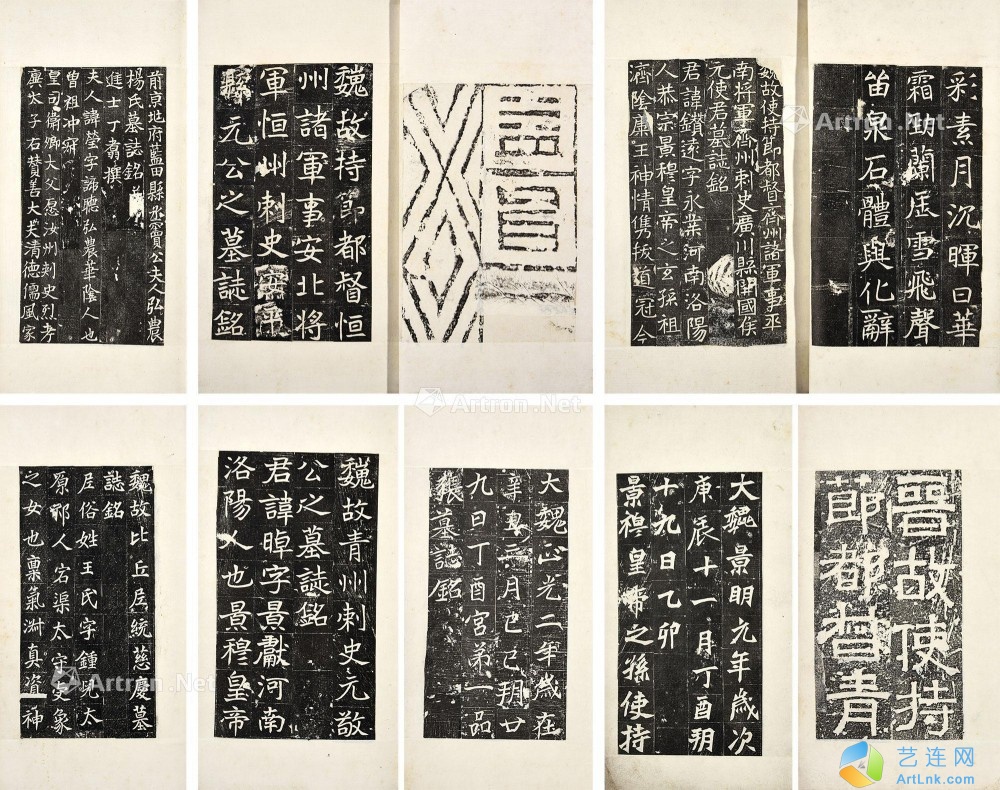 前京兆府藍田縣丞竇公夫人弘農
楊氏墓誌銘并
進士丁翥撰
夫人諱瑩字諦聽弘農華陰人也
曾祖冲寂
皇司衛卿大父愿汝州刾史烈考
廙太子右贊善大夫清德儒風家
魏故持節都督恒
州諸軍事安北將
軍恒州刺史安平
縣元公之墓誌銘
魏故使持節都督齊州諸軍事平
南將軍齊州刺史廣川縣開國侯
元使君墓誌銘
君諱鑽遠字永業河南洛陽
人恭宗景穆皇帝之玄孫祖
濟陰康王神情儁拔道冠今
彩素月沉暉日華
霜勁蘭居雪飛聲
笛泉石體與化辭
魏故比丘尼統慈慶墓
誌銘
尼俗姓王氏字鍾兒太
原祁人宕渠太守虔象
之女也禀氣淵真資神
魏故青州刺史元敬
公之墓誌銘
君諱晫字景獻河南
洛陽人也景穆皇帝
大魏正光二年歲在
辛丑三月己巳朔廿
九日丁酉宮第一品
張墓誌銘
大魏景明元年歲次
庚辰十一月丁酉朔
十九日乙卯
景穆皇帝之孫使持
晉故使持
節都督青
Artron.Net
Artron.Net
Artron.Net
Artron.Net
艺连网
ArtLnk.com